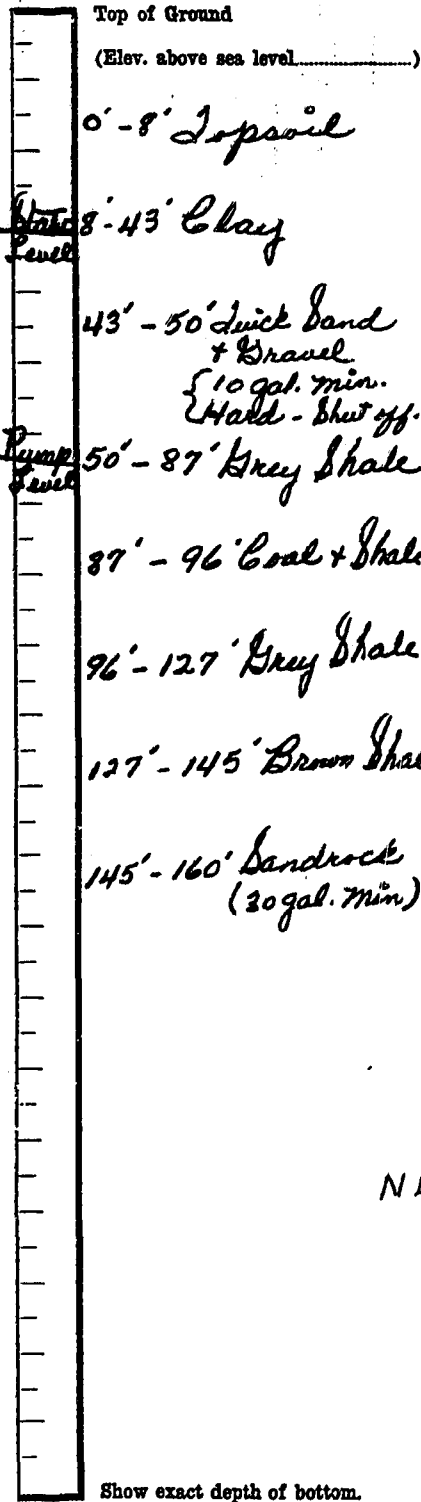 Top of Ground
(Elev. above sea level....................)
0' - 8' Topsoil
Static
Level
8' - 43' Clay
43' - 50' Quick Sand
+ Gravel
{ 10 gal. min.
{ Hard - Shut off.
Pump
Level
50' - 87' Grey Shale
87' - 96' Coal + Shale
96' - 127' Grey Shale
127' - 145' Brown Shal
145' - 160' Sandrock
(30 gal. Min)
N
Show exact depth of bottom.